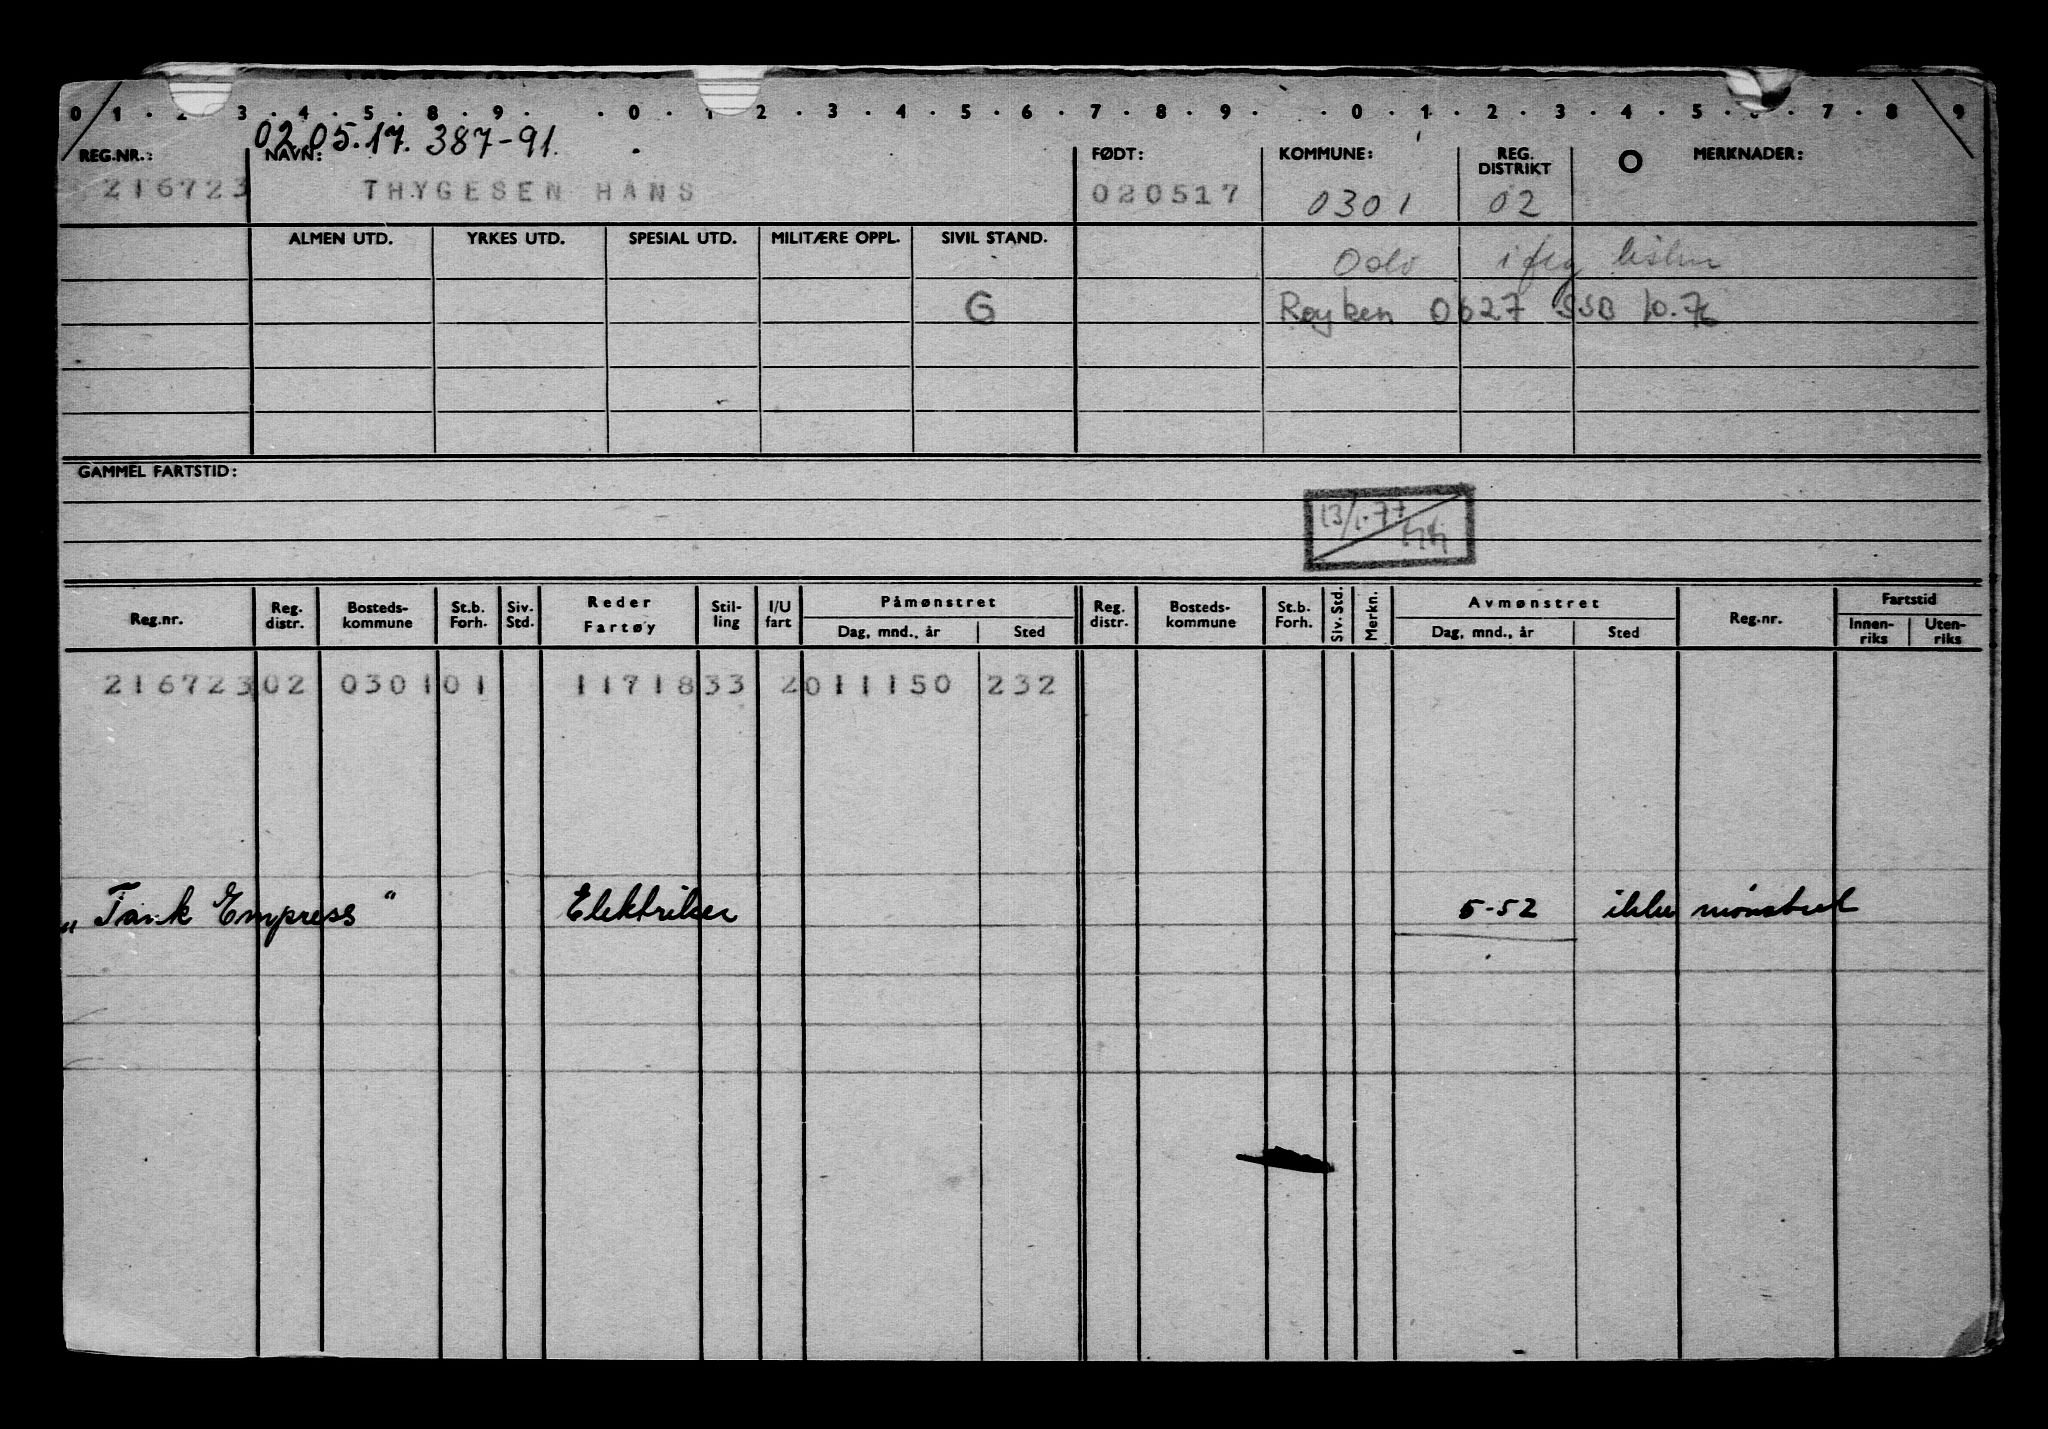 0 1 . 2 3 . 4 . 5 . 8 . 9 . . 0 . 1 2 . 3 . 4 . 5 . 6 . 7 . 8 . 9 . . 0 . 1 . 2 . 3 . 4 . 5 . . 7 . 8 9
02.05.17. 387-91.
REG.NR.: NAVN: FØDT: KOMMUNE: REG. DISTRIKT MERKNADER:
216723 THYGESEN HANS 020517 0301 02
ALMEN UTD. YRKES UTD. SPESIAL UTD. MILITÆRE OPPL. SIVIL STAND.
Oslo
G Røyken 0627 SSB 10.76
GAMMEL FARTSTID:
13/1.77
Reg.nr. Reg. distr. Bosteds- kommune St.b. Forh. Siv. Std. Reder Fartøy Stil- ling I/U fart Påmønstret Dag, mnd., år Sted Reg. distr. Bosteds- kommune St.b. Forh. Siv. Std. Merkn. Avmønstret Dag, mnd., år Sted Reg.nr. Fartstid Innen- riks Uten- riks
216723 02 0301 01 11718 33 2 011150 232
„Tank Empress" Elektriker 5-52 ikke mønstret